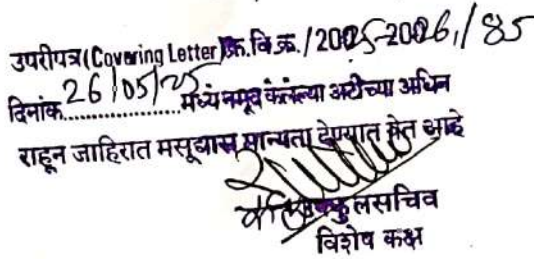 उपरीपत्र (Covering Letter) क्र.वि.क्र./2025-2026/85
दिनांक 26/05/25 मध्ये नमूद केलेल्या अटीच्या अधिन
राहून जाहिरात मसूद्यास मान्यता देण्यात येत आहे
उपकुलसचिव
विशेष कक्ष